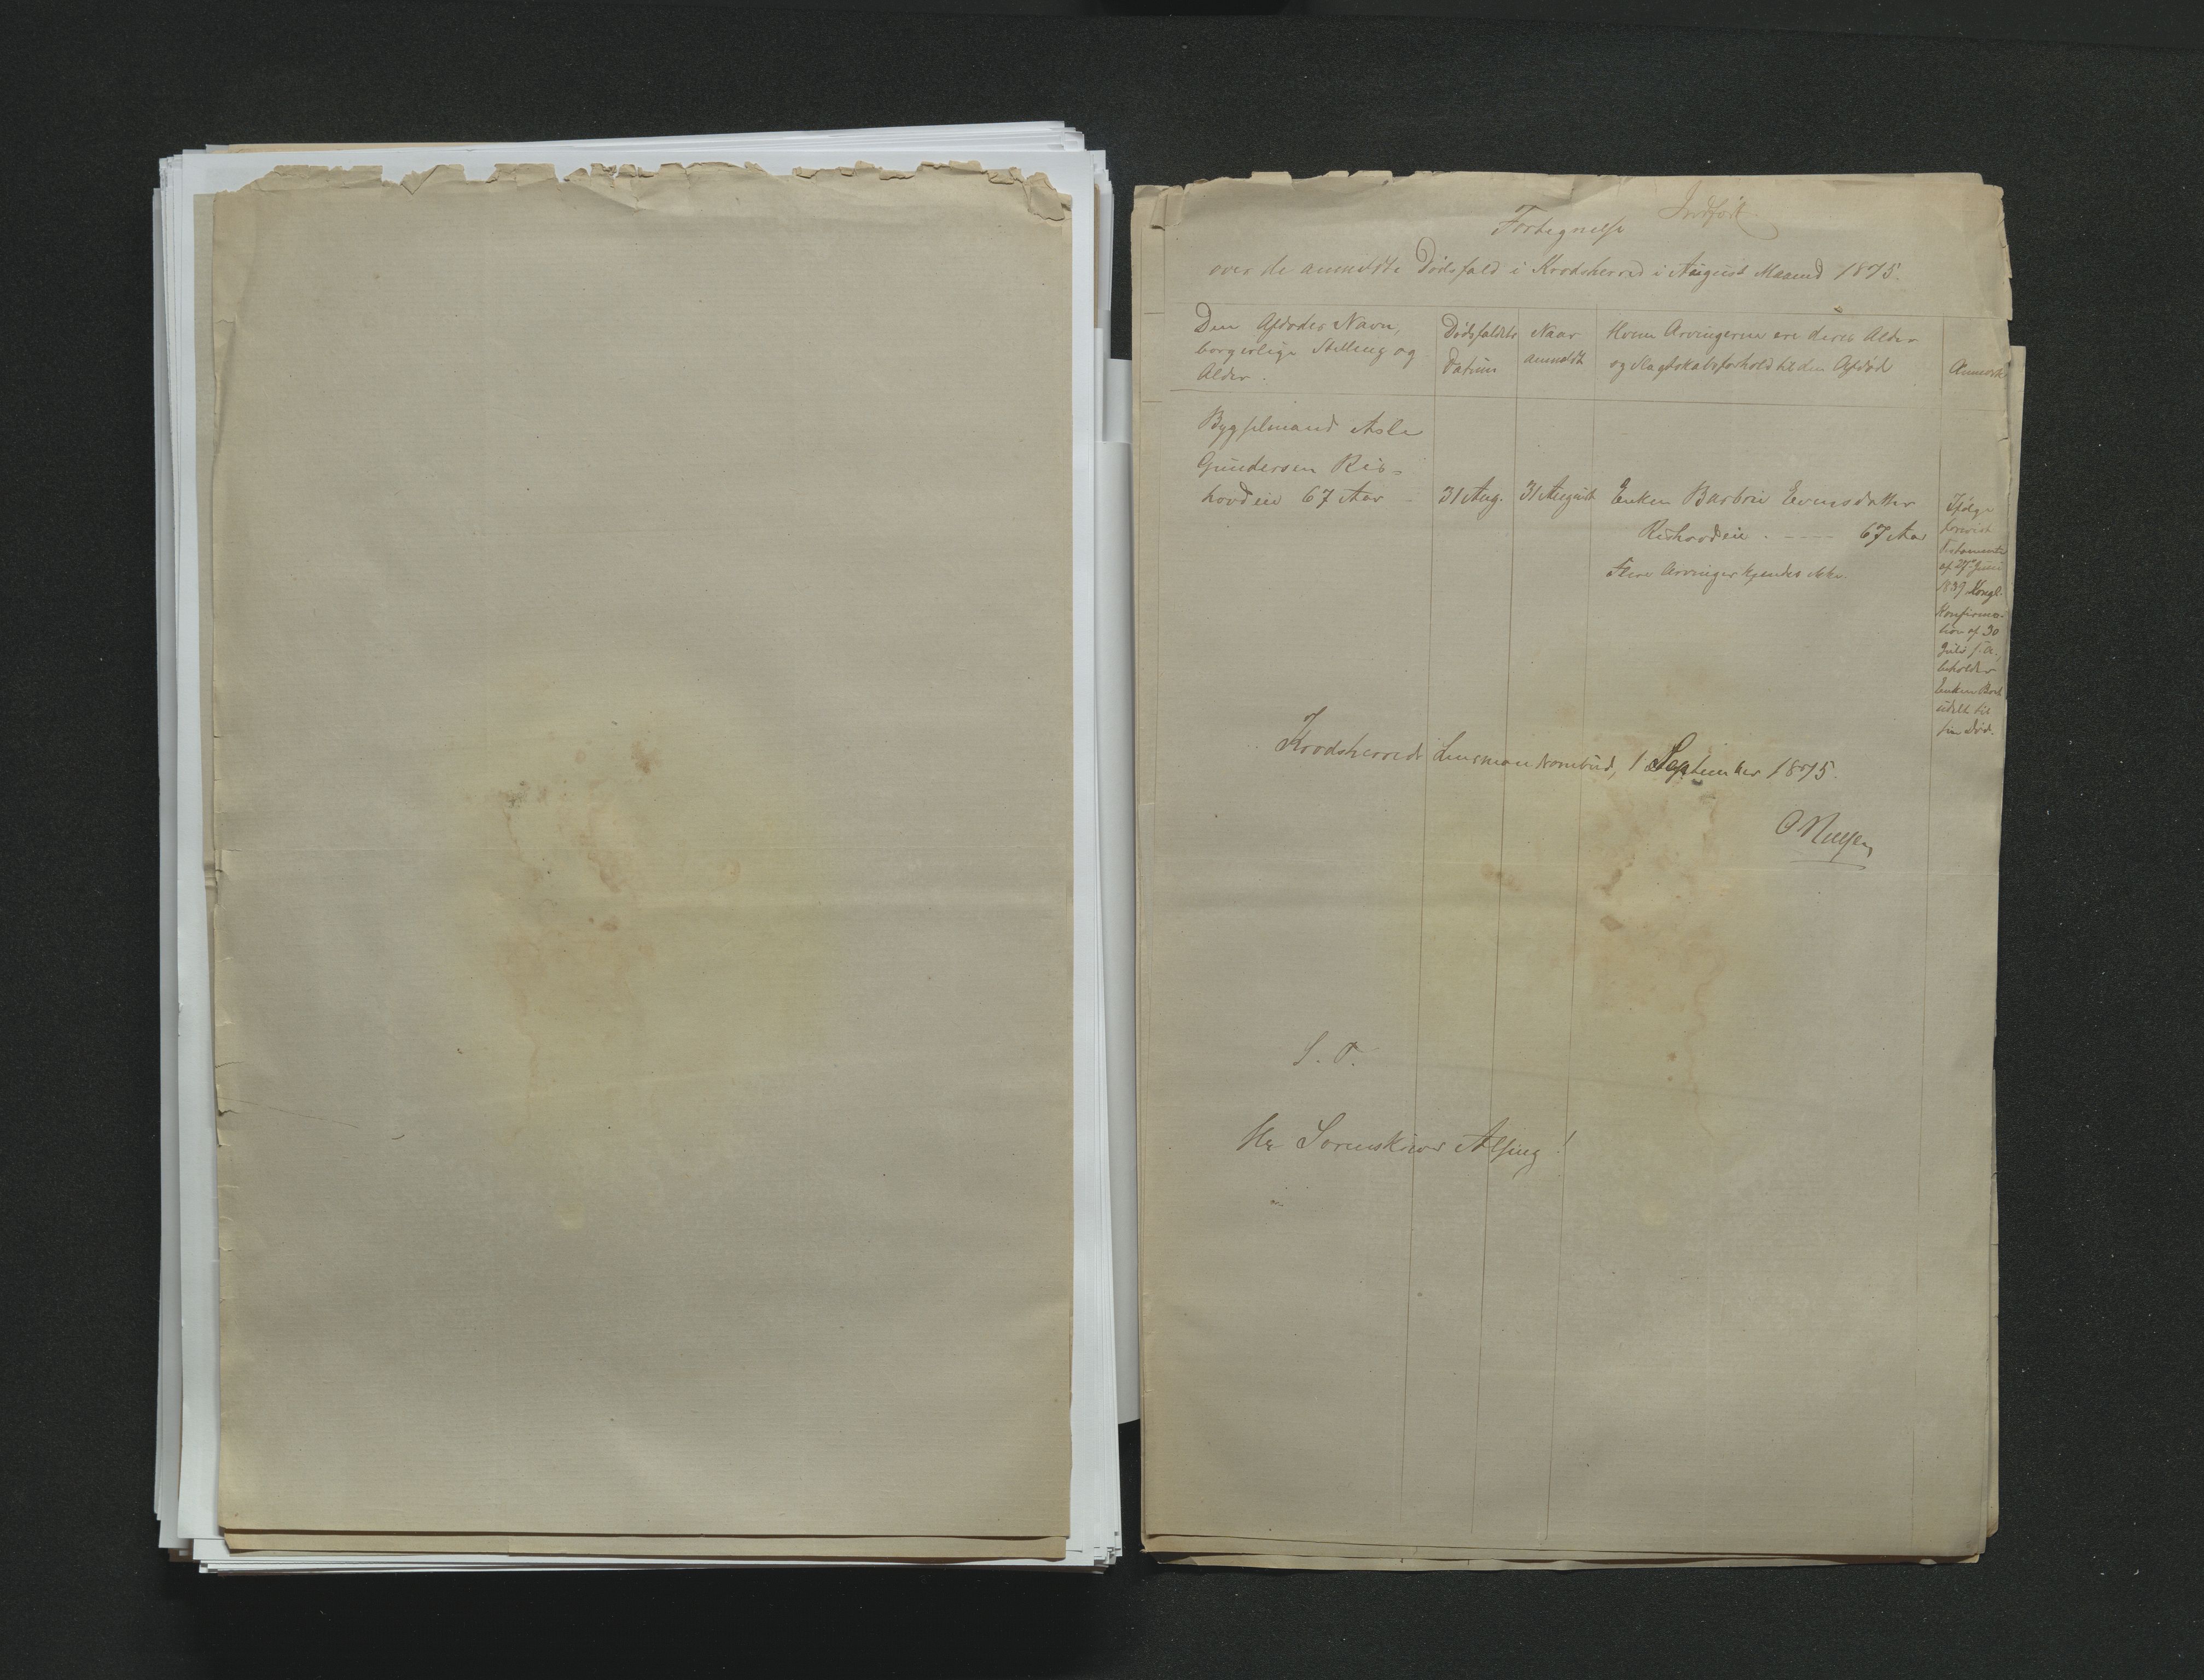 Indført.
Fortegnelse
over de anmeldte Dødsfald i Krodsherred i August Maaned 1875.
Den Afdødes Navn,
borgerlige Stilling og
Alder.
Dødsfaldets
Datum
Naar
anmeldt
Hvem Arvingerne ere deres Alder
og Slagtskabsforhold til den Afdød
Anmærk
Bygselmand Asle
Gundersen Ris-
hovdeie 67 Aar
31 Aug.
31 August
Enken Barbro Evensdatter
Rishovdeie . - - - - 67 Aar
Flere Arvinger kjendes ikke.
Ifølge
forevist
Testamente
af 27 Juni
1839 Kongl.
Konfirma-
tion af 30
Juli s. A.
beholder
Enken Boet
udelt til
sin Død.
Krodsherreds Lensmandsombud, 1 September 1875.
O Nielsen
S. T.
Hr Sorenskriver Alsing!